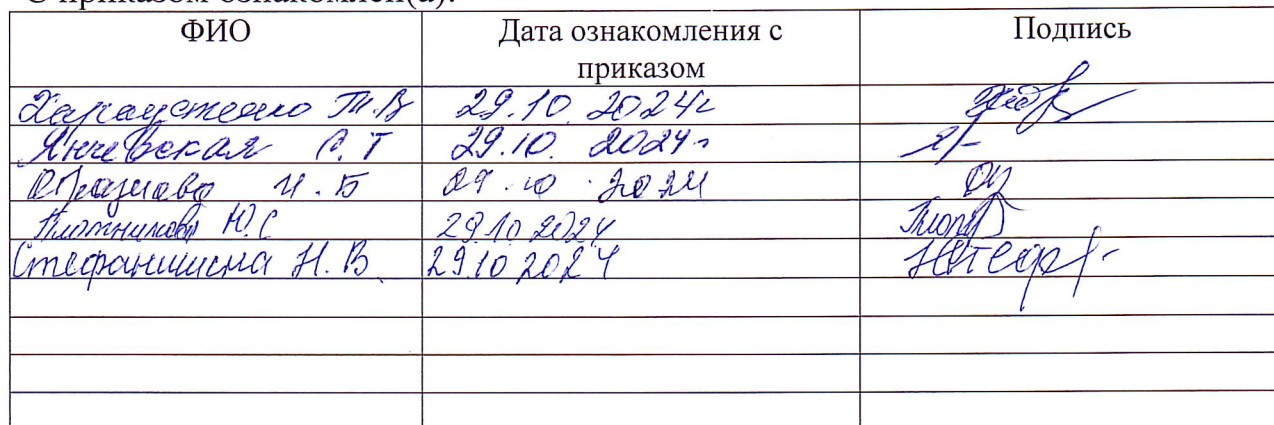 С приказом ознакомлен(а):
ФИО Дата ознакомления с Подпись
приказом
Т.В 29.10.2024г
Янчевская С.Т 29.10.2024г
И.Б 29.10.2024
Плотникова Ю.С 29.10 2024
Стефанишина Н.В. 29.10 2024